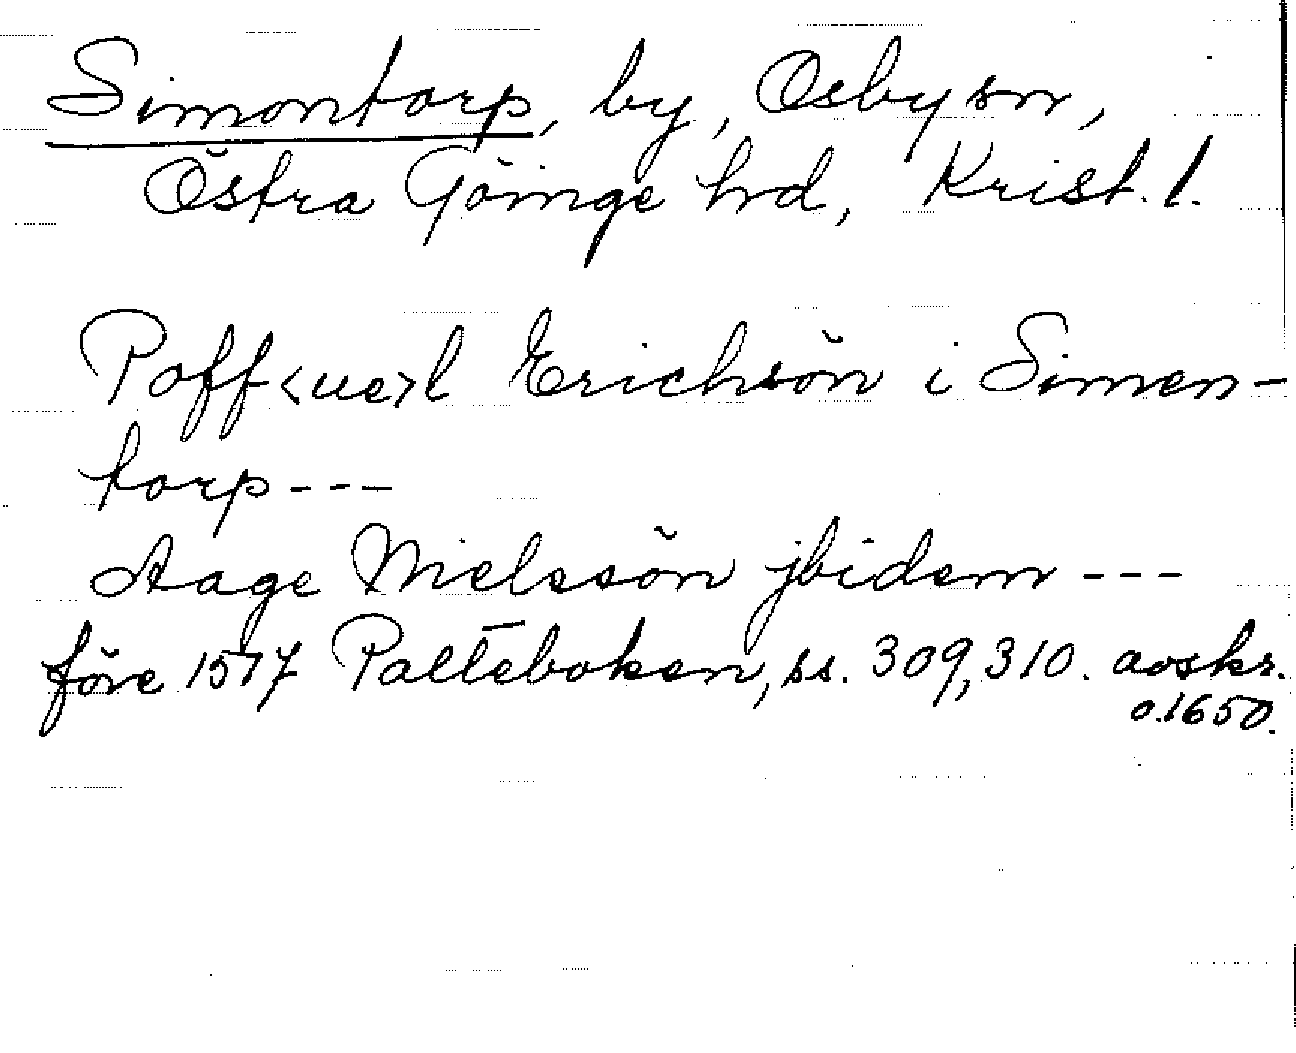 Simontorp, by, Osby sn,
Östra Göinge hd, Krist. l.
Poff<ue>l Erichsön i Simen-
torp ---
Aage Nielssön jbidem ---
före 1577 Palteboken, ss. 309, 310. avskr.
o. 1650.